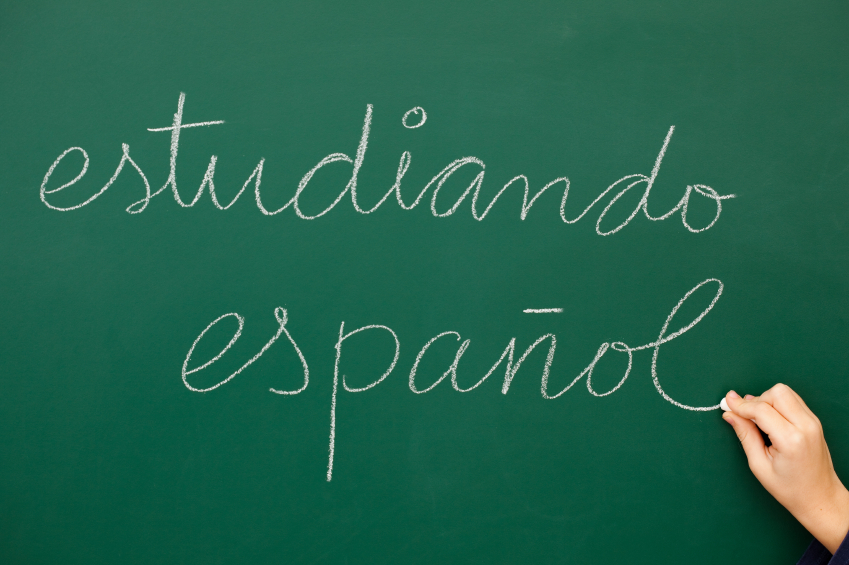 estudiando
español